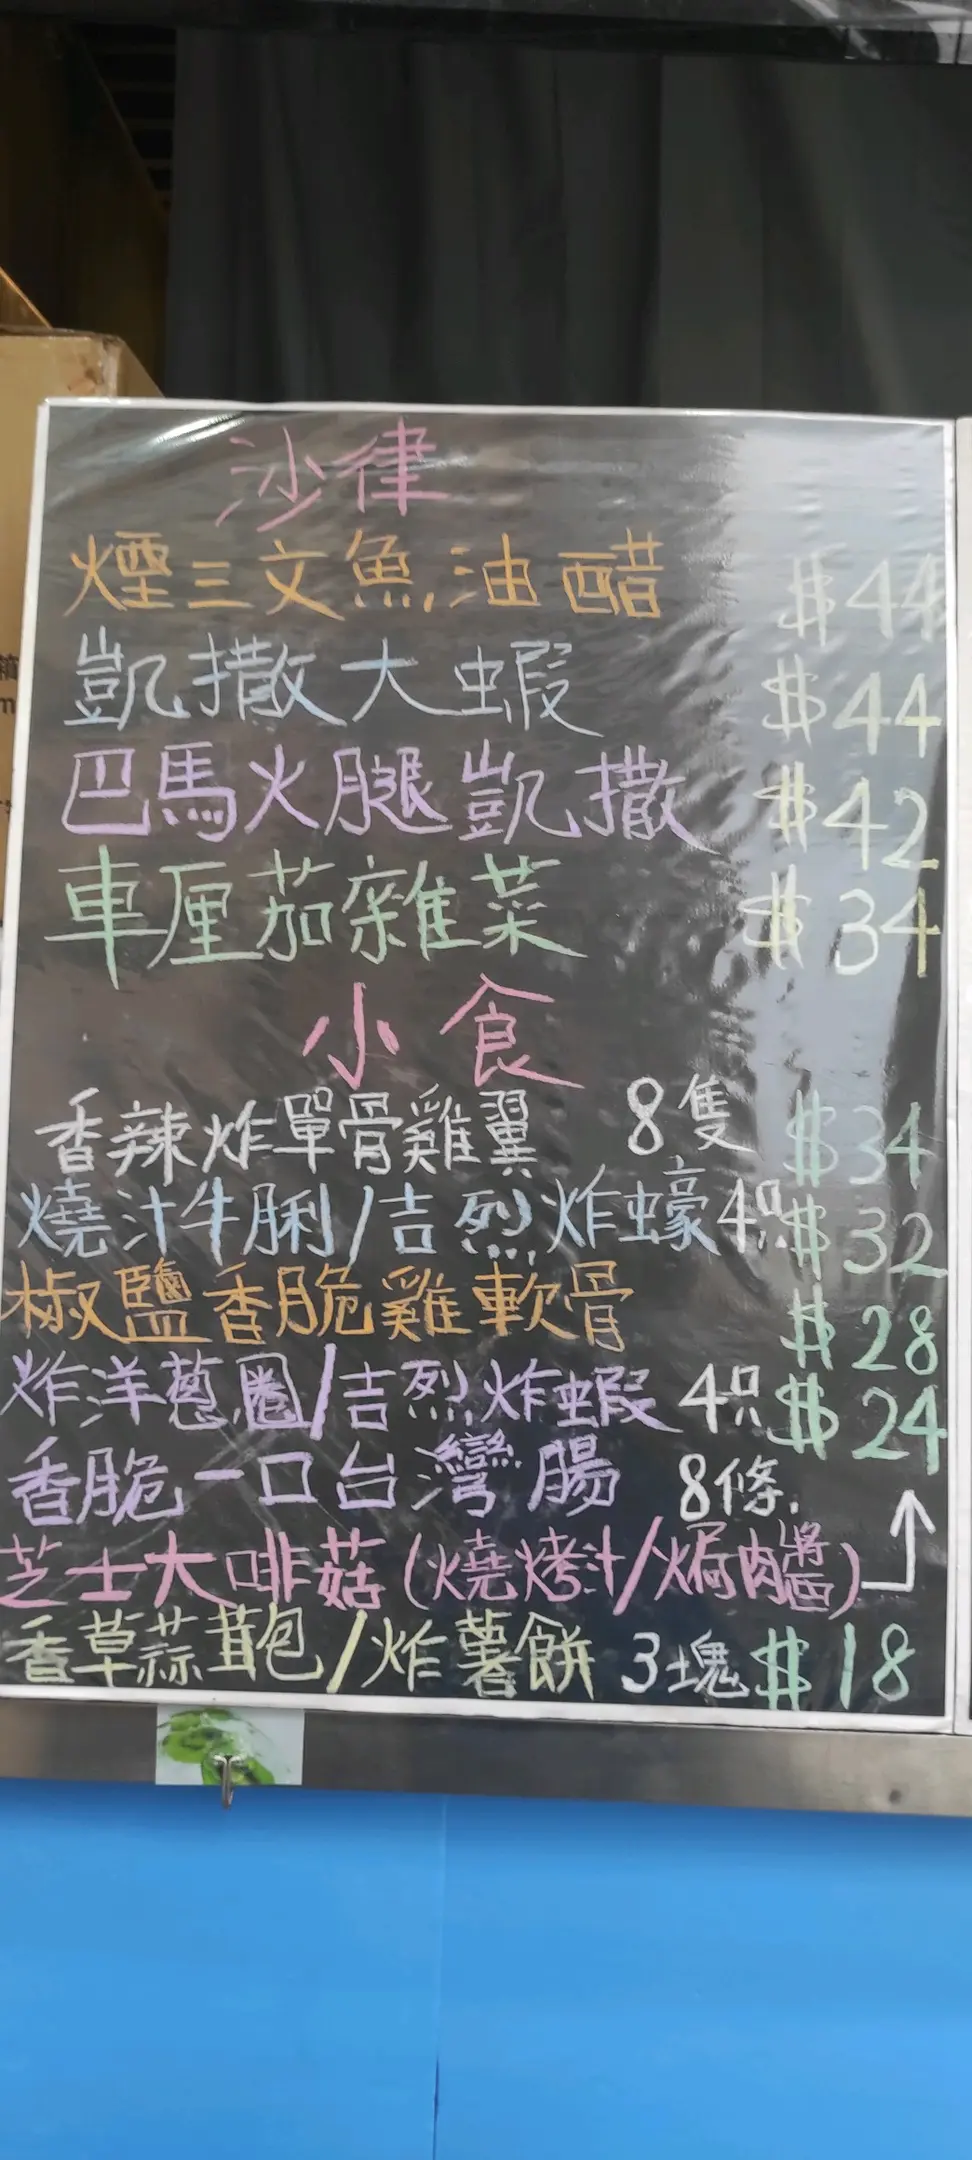 沙律
煙三文魚油醋 $44
凱撒大蝦 $44
巴馬火腿凱撒 $42
車厘茄雜菜 $34
小食
香辣炸單骨雞翼 8隻 $34
燒汁牛脷/吉烈炸蠔4只 $32
椒鹽香脆雞軟骨 $28
炸洋蔥圈/吉烈炸蝦4只 $24
香脆一口台灣腸 8條.
芝士大啡菇(燒烤汁/焗肉醬)
香草蒜茸包/炸薯餅 3塊 $18